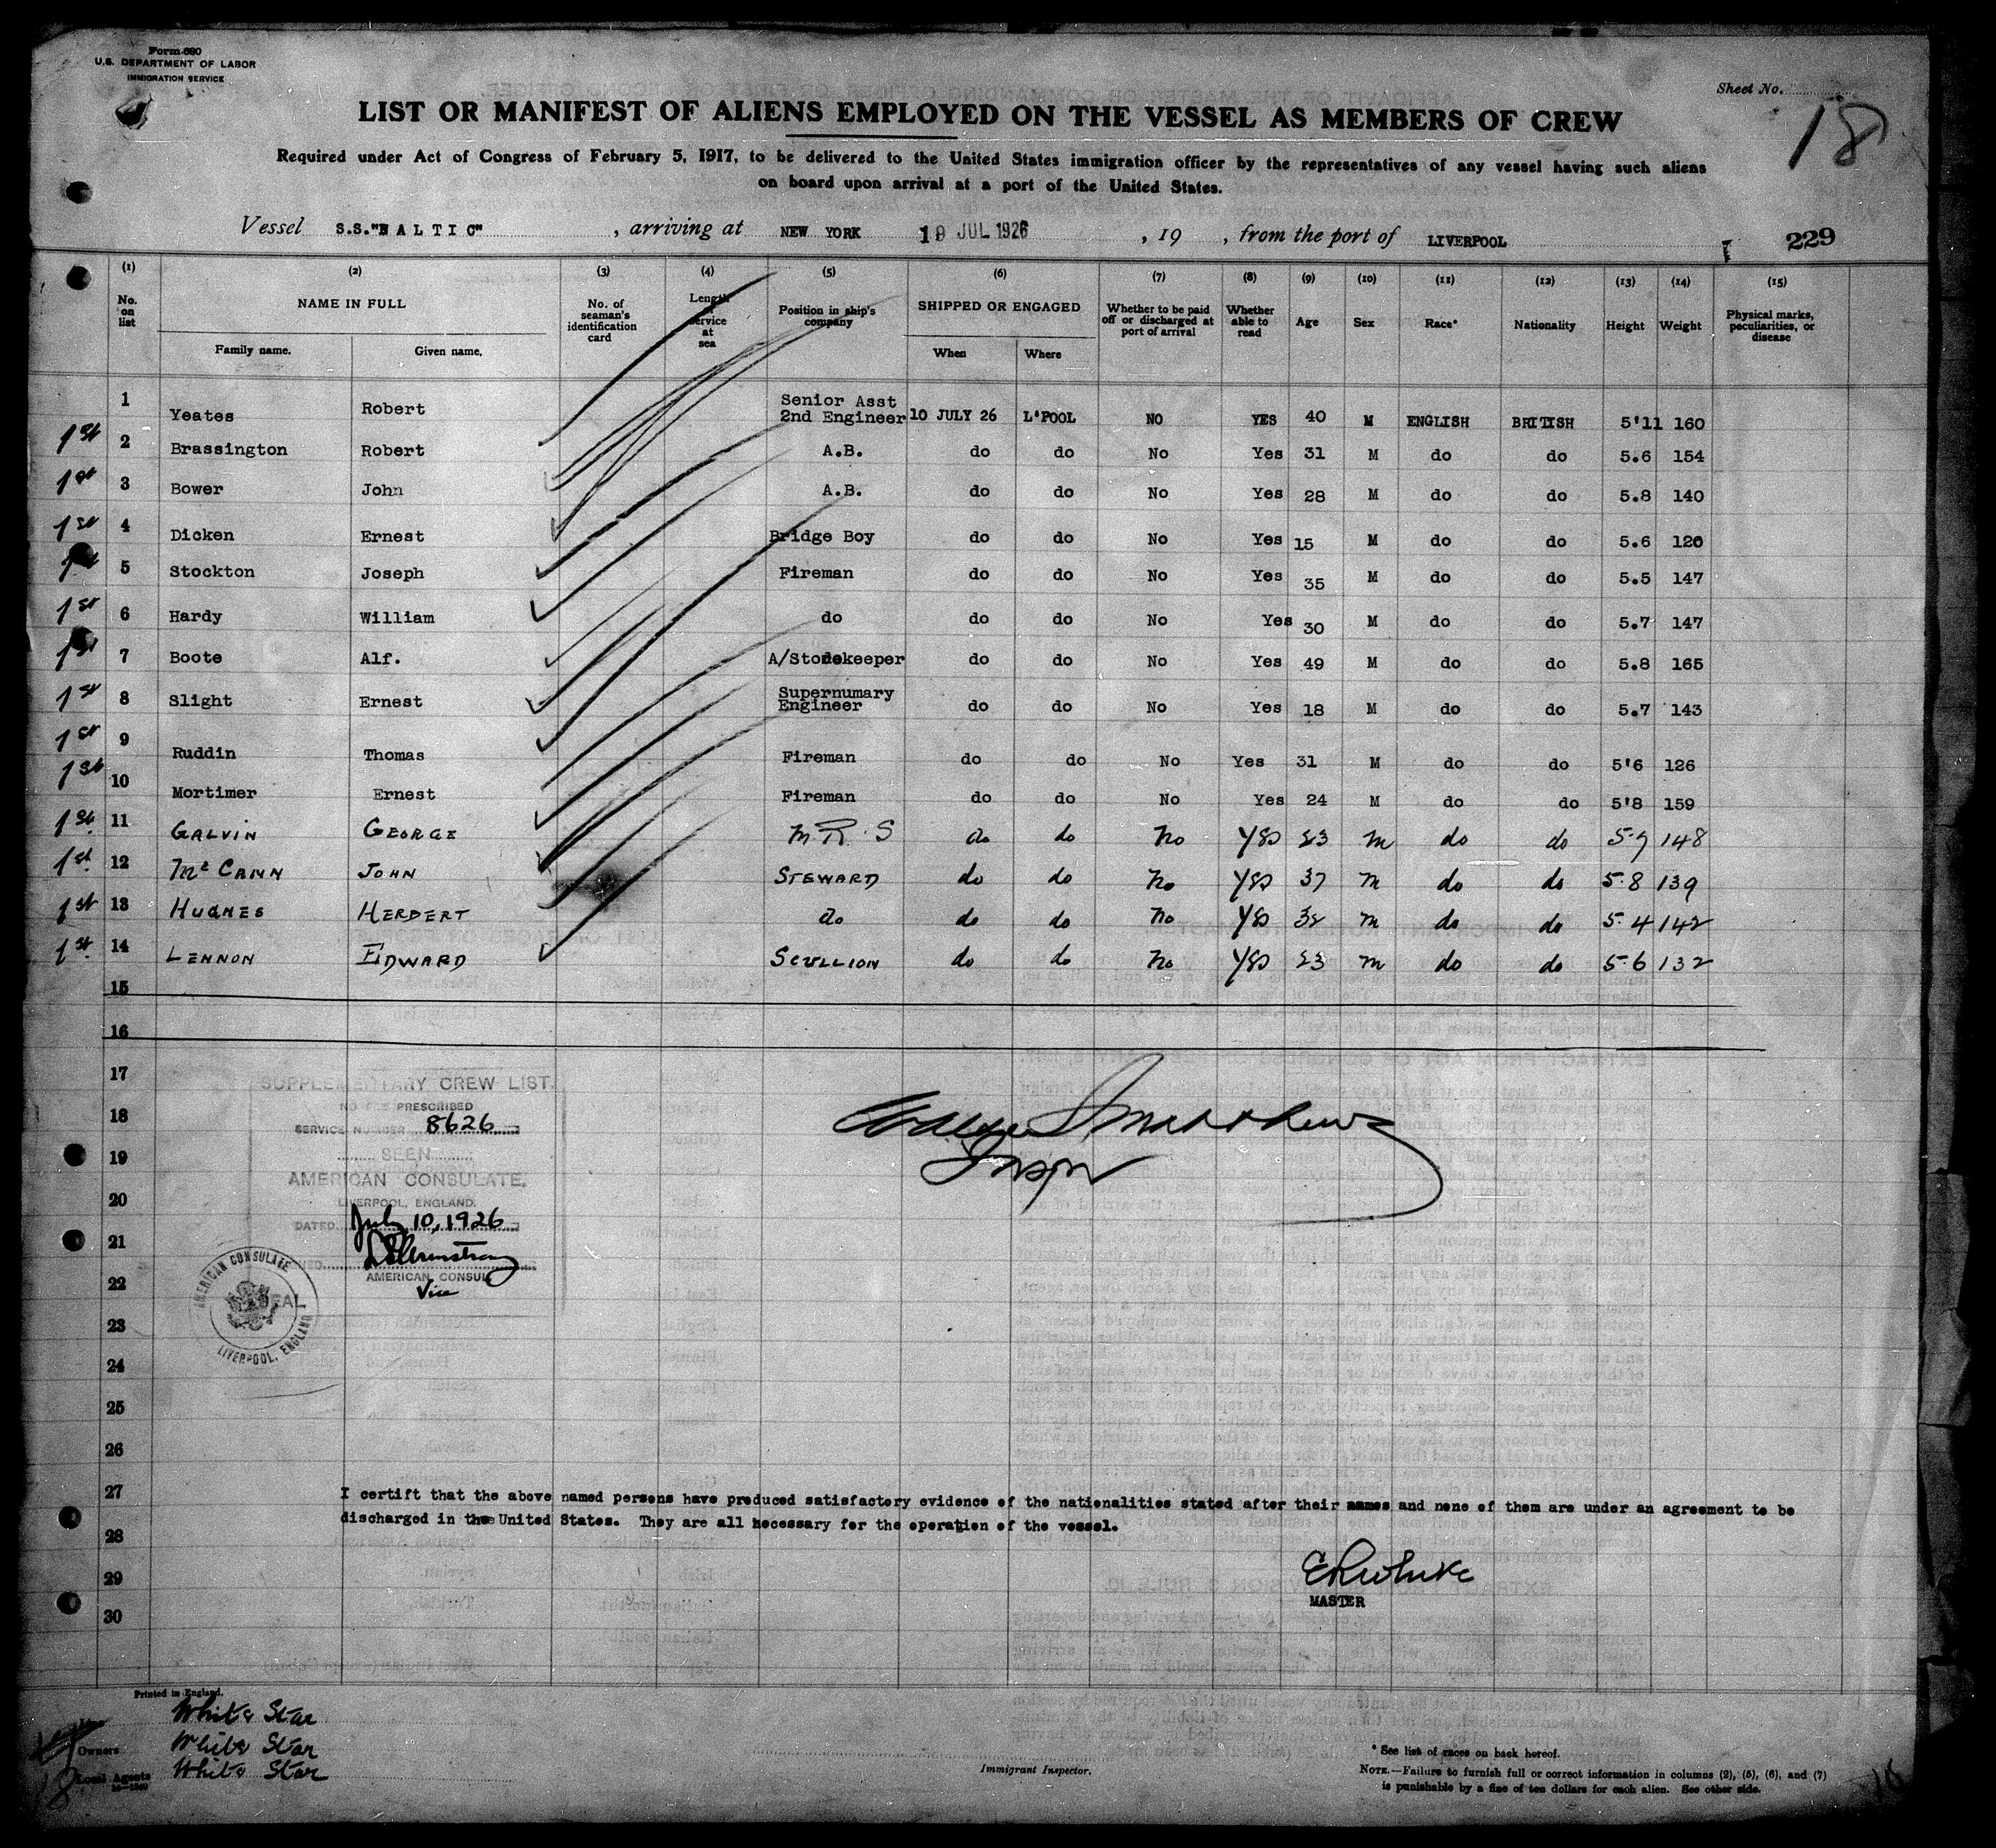 Form 680
U.S. DEPARTMENT OF LABOR
IMMIGRATION SERVICE
Sheet No.
18
LIST OR MANIFEST OF ALIENS EMPLOYED ON THE VESSEL AS MEMBERS OF CREW
Required under Act of Congress of February 5, 1917, to be delivered to the United States immigration officer by the representatives of any vessel having such aliens
on board upon arrival at a port of the United States.
Vessel S.S."BALTIC", arriving at NEW YORK 19 JUL 1926, 19 , from the port of LIVERPOOL 229
(1) (2) (3) (4) (5) (6) (7) (8) (9) (10) (11) (12) (13) (14) (15)
No. on list NAME IN FULL Family name. Given name. No. of seaman's identification card Length of service at sea Position in ship's company SHIPPED OR ENGAGED When Where Whether to be paid off or discharged at port of arrival Whether able to read Age Sex Race* Nationality Height Weight Physical marks, peculiarities, or disease
1 Yeates Robert Senior Asst 2nd Engineer 10 JULY 26 L'POOL NO YES 40 M ENGLISH BRITISH 5'11 160
1st 2 Brassington Robert A.B. do do No Yes 31 M do do 5.6 154
1st 3 Bower John A.B. do do No Yes 28 M do do 5.8 140
1st 4 Dicken Ernest Bridge Boy do do No Yes 15 M do do 5.6 120
1st 5 Stockton Joseph Fireman do do No Yes 35 M do do 5.5 147
1st 6 Hardy William do do do No Yes 30 M do do 5.7 147
1st 7 Boote Alf. A/Storekeeper do do No Yes 49 M do do 5.8 165
1st 8 Slight Ernest Supernumary Engineer do do No Yes 18 M do do 5.7 143
1st 9 Ruddin Thomas Fireman do do No Yes 31 M do do 5'6 126
1st 10 Mortimer Ernest Fireman do do No Yes 24 M do do 5'8 159
1st 11 GALVIN GEORGE M.R.S do do No Yes 23 M do do 5-7 148
1st 12 Mc CANN JOHN STEWARD do do No Yes 37 M do do 5.8 139
1st 13 HUGHES HERBERT do do do No Yes 32 M do do 5.4 142
1st 14 LENNON EDWARD SCULLION do do No Yes 23 M do do 5-6 132
15
16
17
18
19
20
21
22
23
24
25
26
27
28
29
30
SUPPLEMENTARY CREW LIST.
NO FEE PRESCRIBED
SERVICE NUMBER 8626
SEEN
AMERICAN CONSULATE,
LIVERPOOL, ENGLAND.
DATED July 10, 1926
AMERICAN CONSUL
Vice
AMERICAN CONSULATE
SEAL
LIVERPOOL, ENGLAND
Inspr
I certify that the above named persons have produced satisfactory evidence of the nationalities stated after their names and none of them are under an agreement to be
discharged in the United States. They are all necessary for the operation of the vessel.
MASTER
Printed in England.
White Star
Owners White Star
Local Agents White Star
Immigrant Inspector.
* See list of races on back hereof.
NOTE.—Failure to furnish full or correct information in columns (2), (5), (6), and (7)
is punishable by a fine of ten dollars for each alien. See other side.